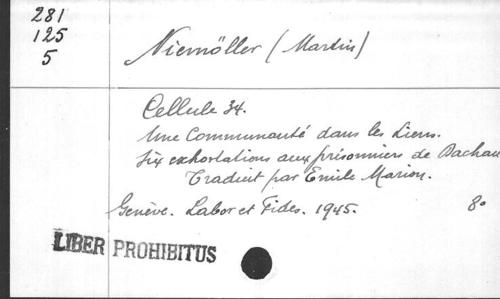 281
125
5
Niemöller (Martin)
Cellule 34.
Une Communauté dans les Liens.
Six exhortations aux prisonniers de Dachau
Traduit par Emile Marion.
Genève. Labor et Fides. 1945. 8°
LIBER PROHIBITUS